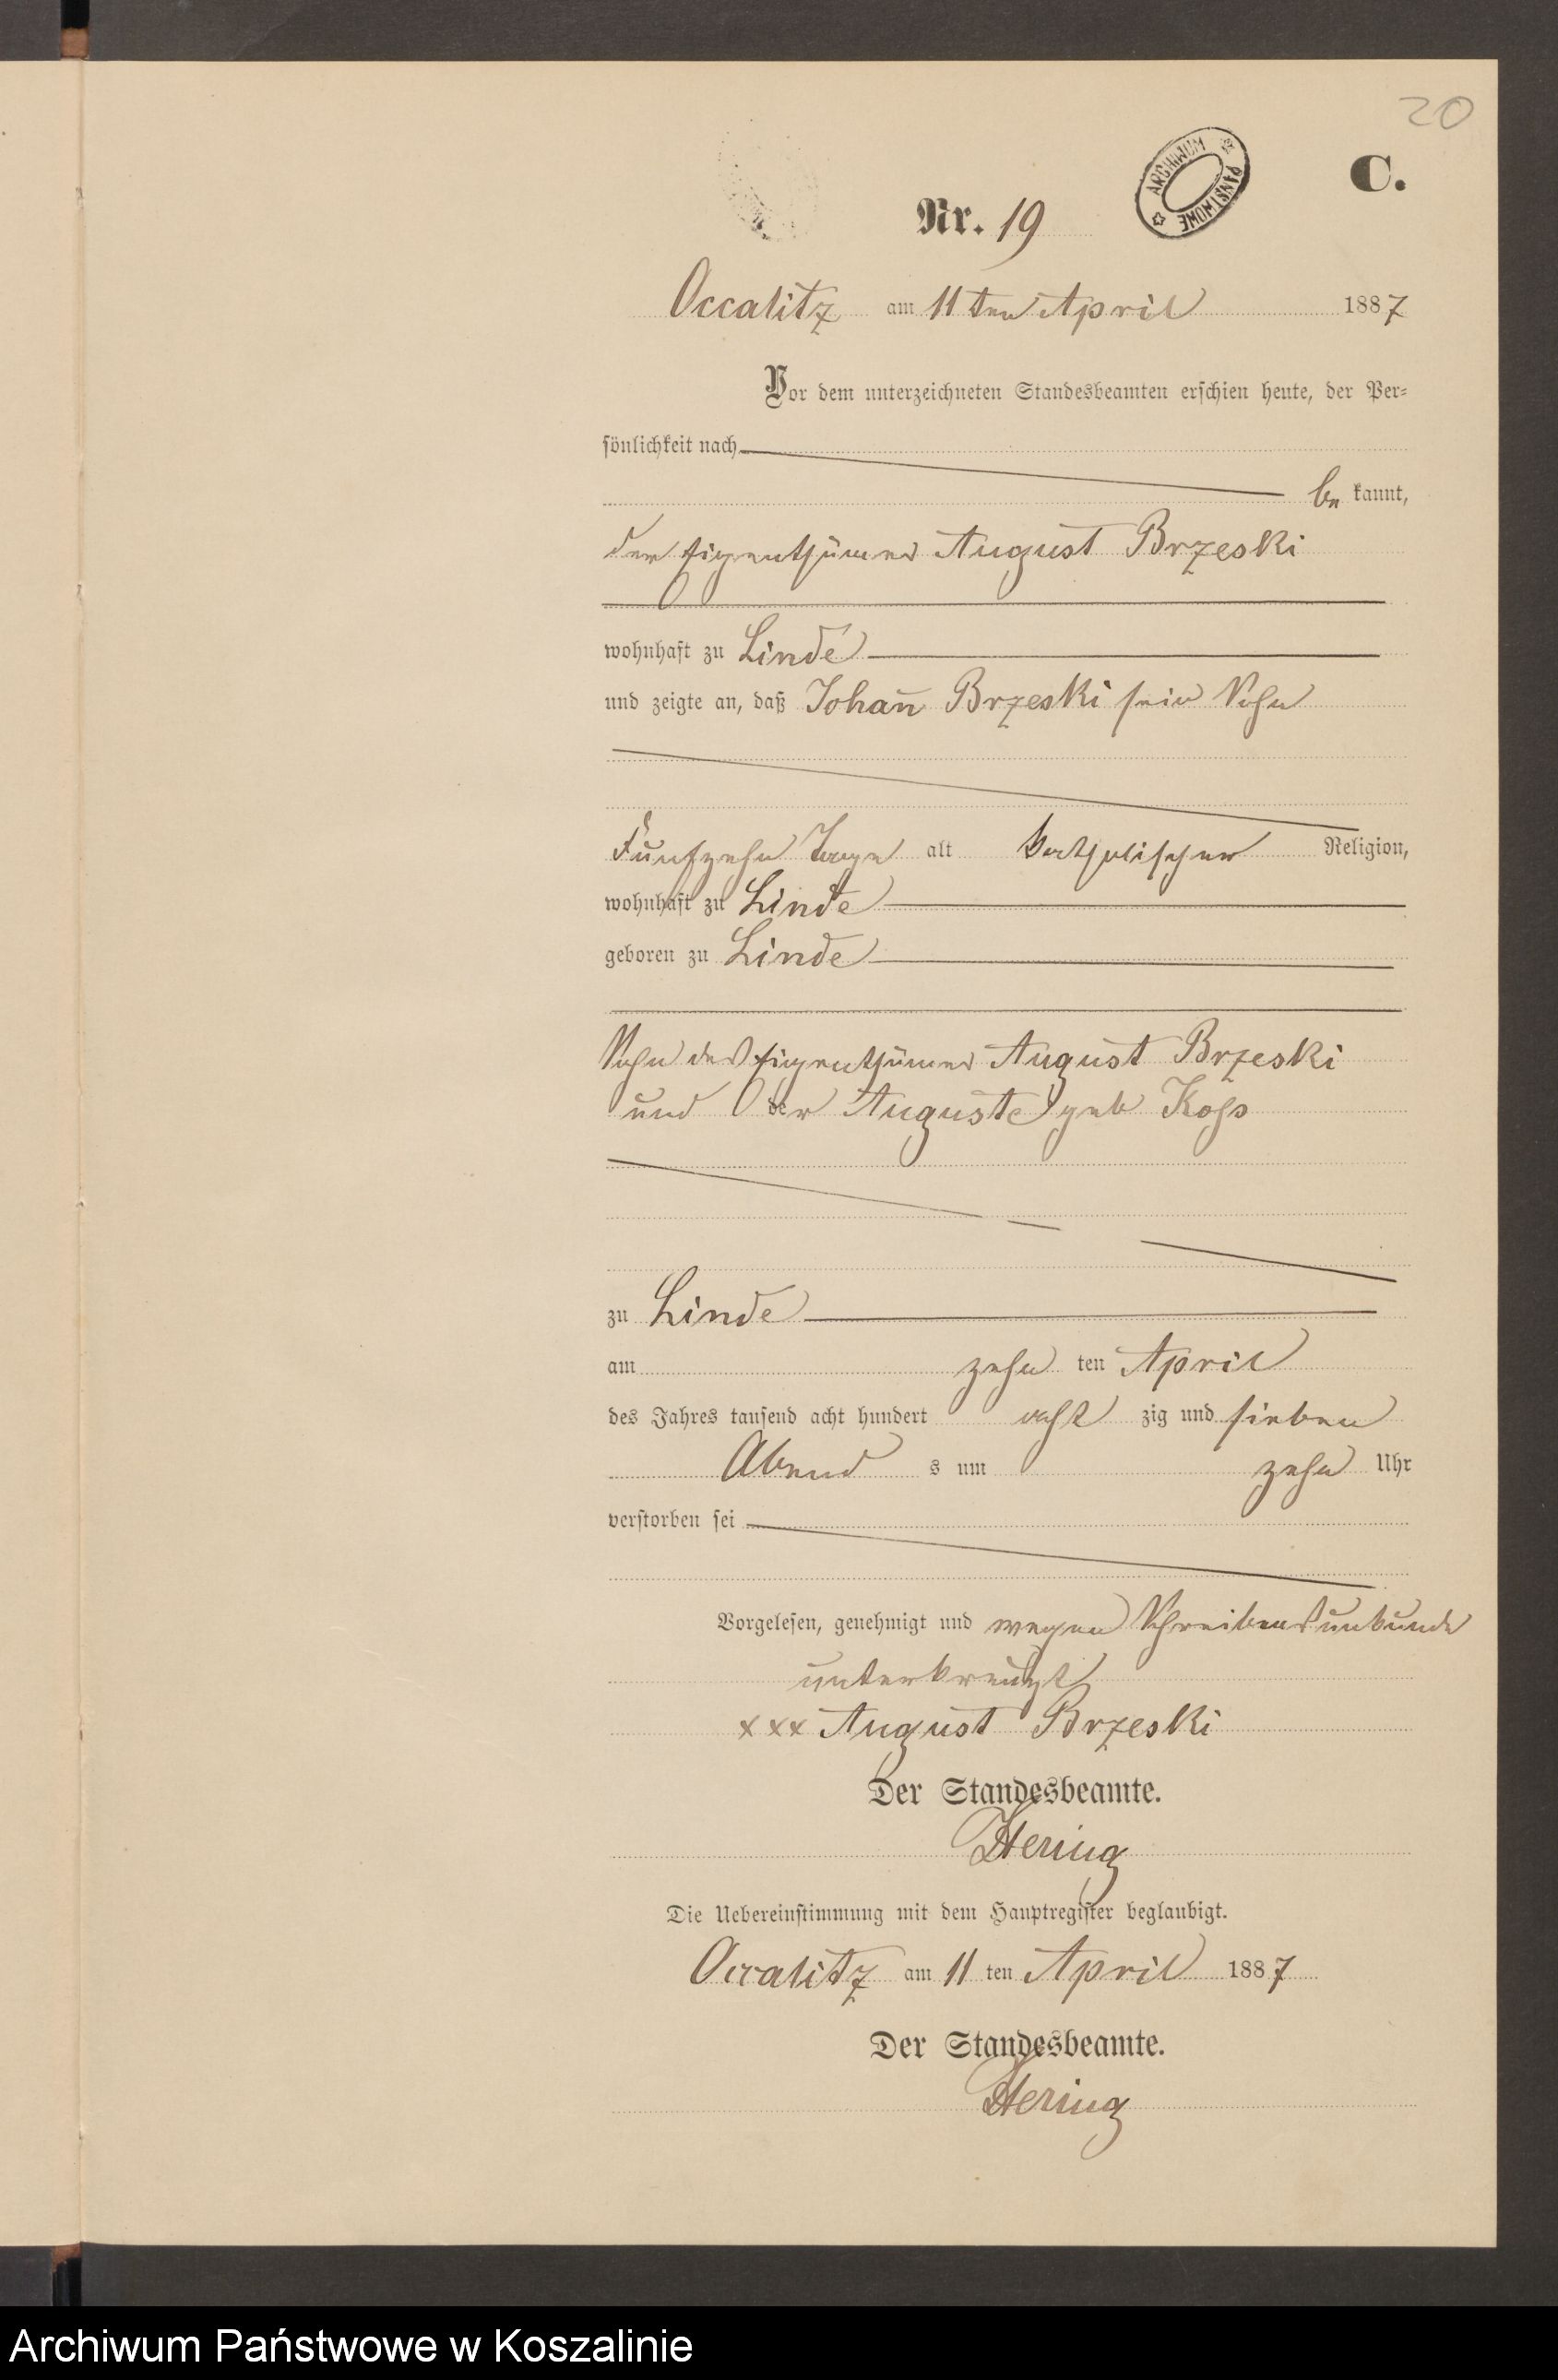 20
C.
ARCHIWUM PAŃSTWOWE
Nr. 19
Occalitz am 11 ten April 1887
Vor dem unterzeichneten Standesbeamten erschien heute, der Per-
sönlichkeit nach
be kannt,
der Eigenthümer August Brzeski
wohnhaft zu Linde
und zeigte an, daß Johan̄ Brzeski sein Sohn
Fünfzehn Tage alt katholischer Religion,
wohnhaft zu Linde
geboren zu Linde
Sohn des Eigenthümer August Brzeski
und der Auguste geb Koss
zu Linde
am zehn ten April
des Jahres tausend acht hundert acht zig und sieben
Abend s um zehn Uhr
verstorben sei
Vorgelesen, genehmigt und wegen Schreibensunkunde
unterkreuzt
xxx August Brzeski
Der Standesbeamte.
Hering
Die Uebereinstimmung mit dem Hauptregister beglaubigt.
Occalitz am 11 ten April 1887
Der Standesbeamte.
Hering
Archiwum Państwowe w Koszalinie